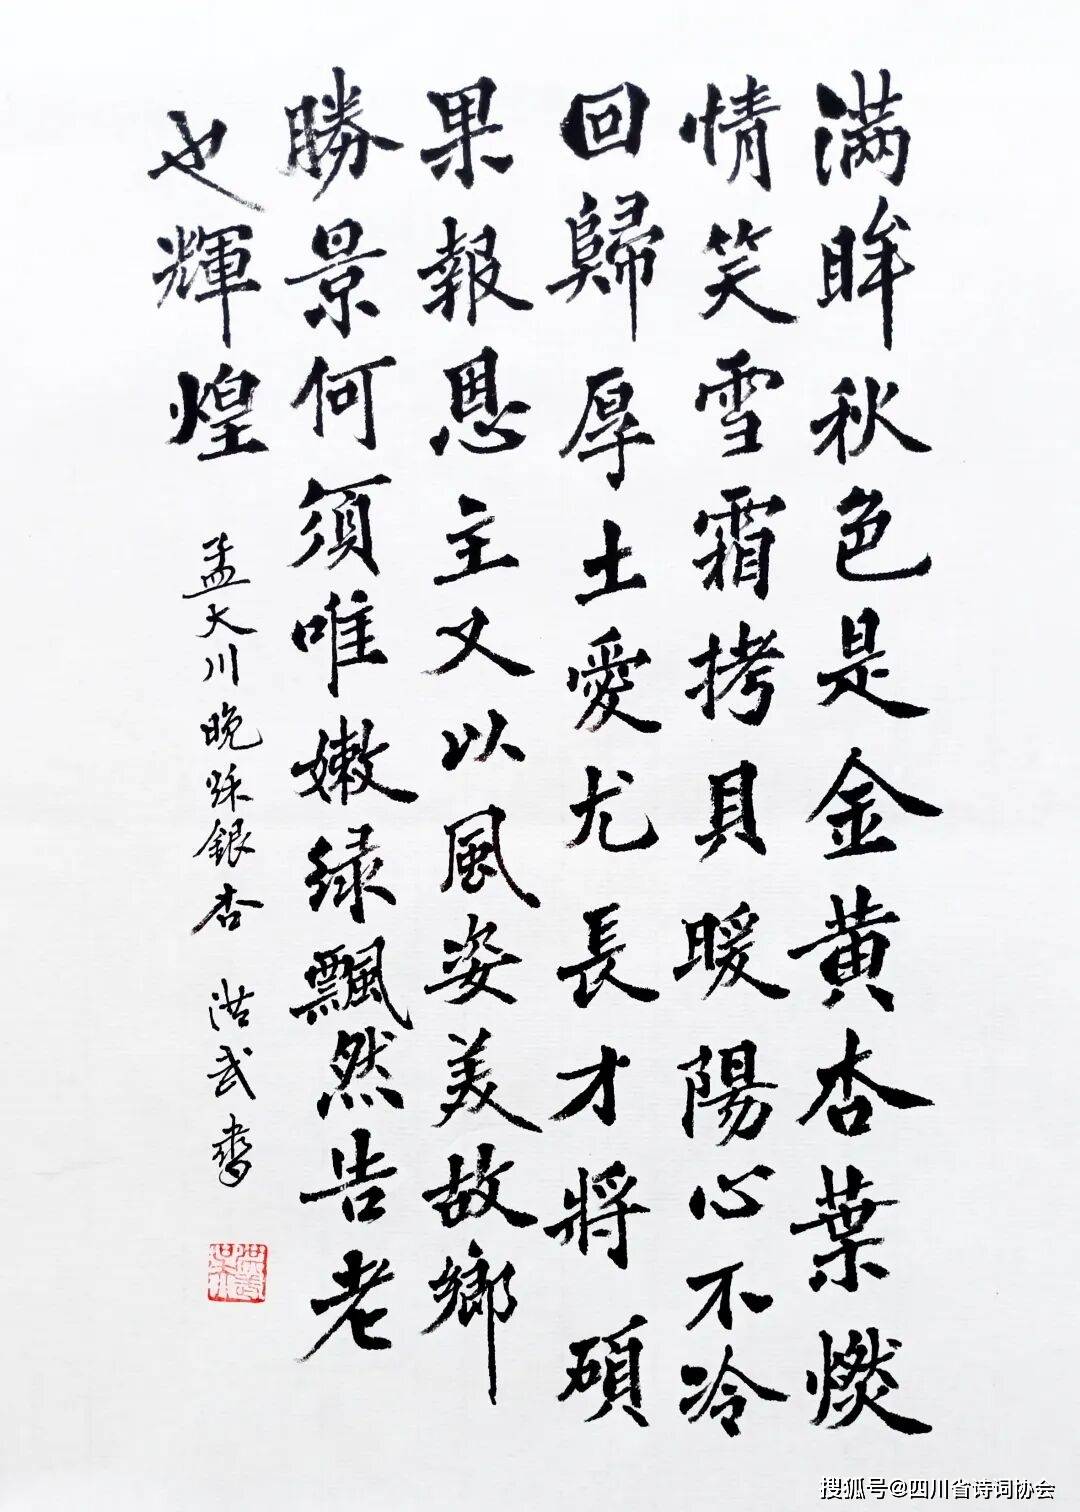 满眸秋色是金黄杏葉燃
情笑雪霜拷具暖陽心不冷
回歸厚土愛尤長才將碩
果報恩主又以風姿美故鄉
勝景何須唯嫩緑飄然告老
也輝煌
孟大川晚秌銀杏 洪武書
搜狐号@四川省诗词协会